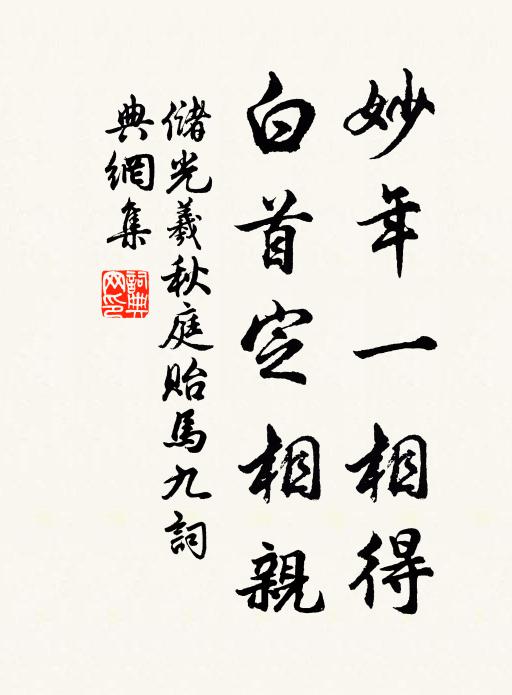 妙年一相得
白首定相親
儲光羲秋庭貽馬九詞
典網集
詞典
网印